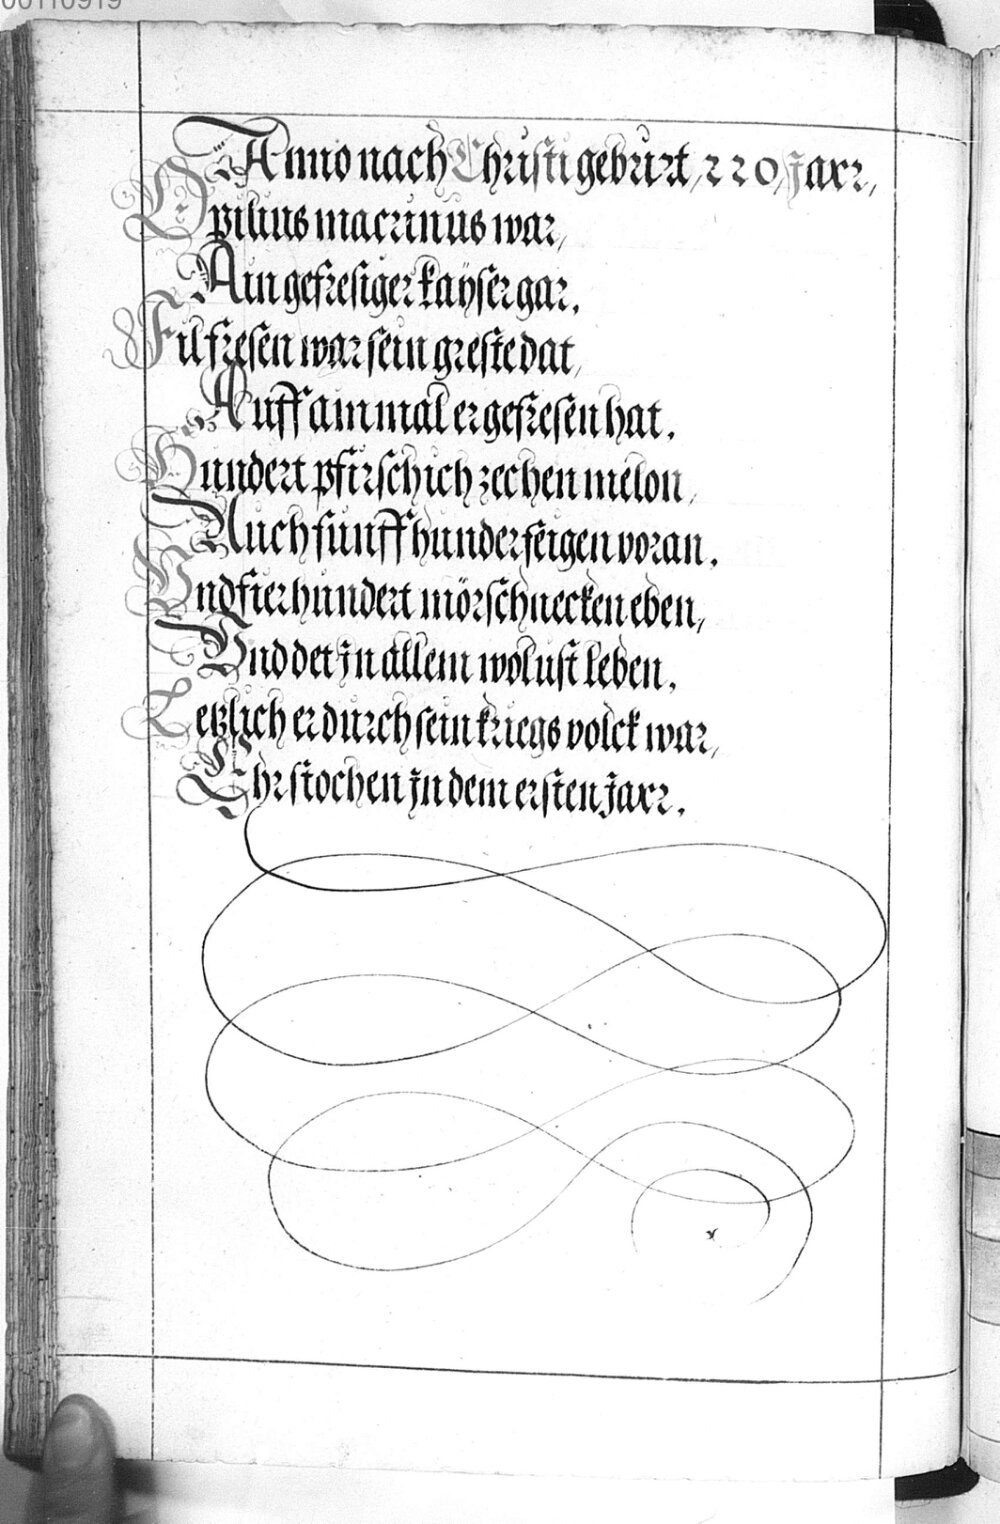 00110919
Anno nach Christi geburt, 220, Jaxr,
Opilius macrinus war,
Ain gefresiger kayser gar.
Fil fresen war sein greste dat,
Auff ain mal er gefresen hat.
Hundert pfirschich zechen melon,
Auch funff hunder feigen voran.
Und fier hundert mörschnecken eben,
Und det Jn allem wolust leben.
Letzlich er durch sein kriegs volck war,
Ehrstochen Jn dem ersten Jaxr.